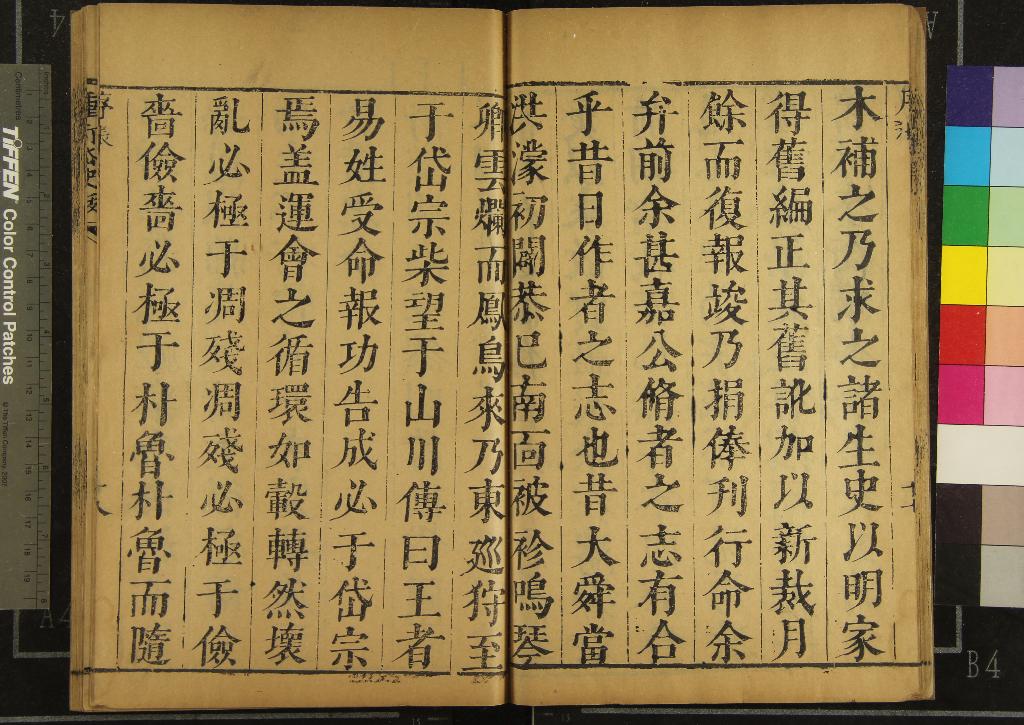 木補之乃求之諸生史以明家
得舊編正其舊訛加以新裁月
餘而復報竣乃捐俸刊行命余
弁前余甚嘉公脩者之志有合
乎昔日作者之志也昔大舜當
洪濛初闢恭巳南面被袗鳴琴
卿雲爛而鳳鳥來乃東廵狩至
于岱宗柴望于山川傳曰王者
易姓受命報功告成必于岱宗
焉盖運會之循環如轂轉然壞
亂必極于凋殘凋殘必極于儉
嗇儉嗇必極于朴魯朴魯而隨
TIFFEN Color Control Patches
© The Tiffen Company, 2000
Centimetres
B4
A4